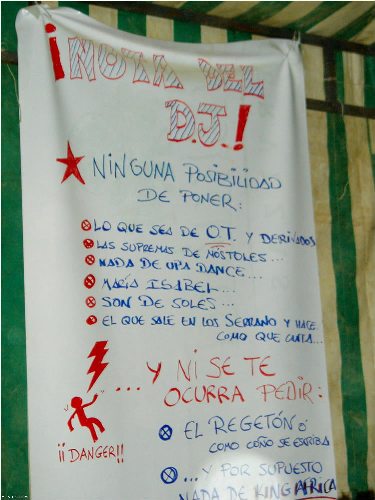 ¡NOTA DEL
D.J.!
NINGUNA POSIBILIDAD
DE PONER:
LO QUE SEA DE OT. Y DERIVADOS
LAS SUPREMAS DE MÓSTOLES...
NADA DE UPA DANCE...
MARÍA ISABEL...
SON DE SOLES...
EL QUE SALE EN LOS SERRANO Y HACE
COMO QUE CANTA...
...Y NI SE TE
OCURRA PEDIR:
¡¡DANGER!!
EL REGETÓN Ó
COMO COÑO SE ESCRIBA
...Y POR SUPUESTO
NADA DE KING AFRICA